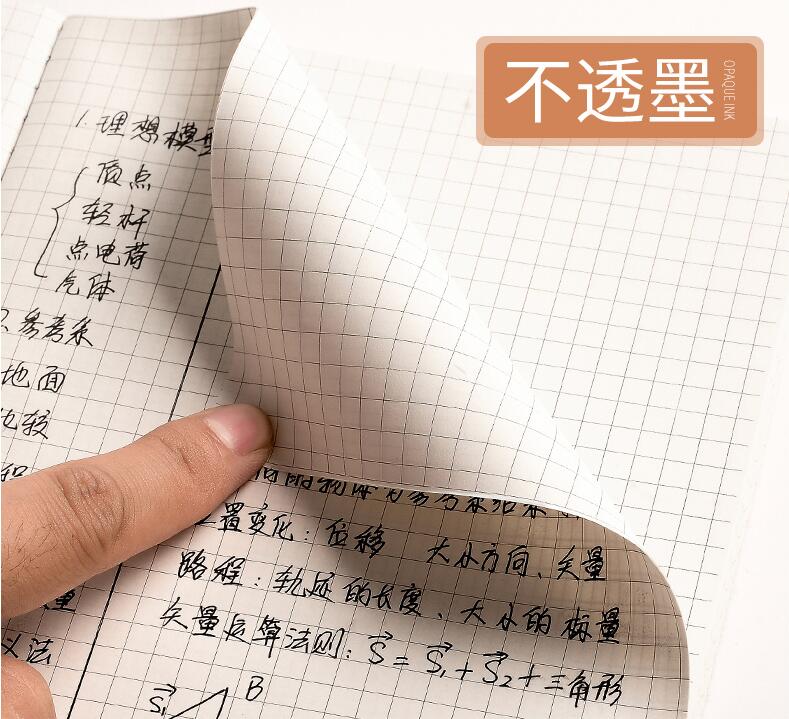 不透墨
OPAQUE INK
1.理想模型
质点
轻杆
点电荷
气体
参考系
地面
比较
置变化:位移 大小方向、矢量
路程:轨迹的长度、大小的标量
矢量运算法则:S⃗=S⃗₁+S⃗₂+三角形
义法
S⃗₁
B